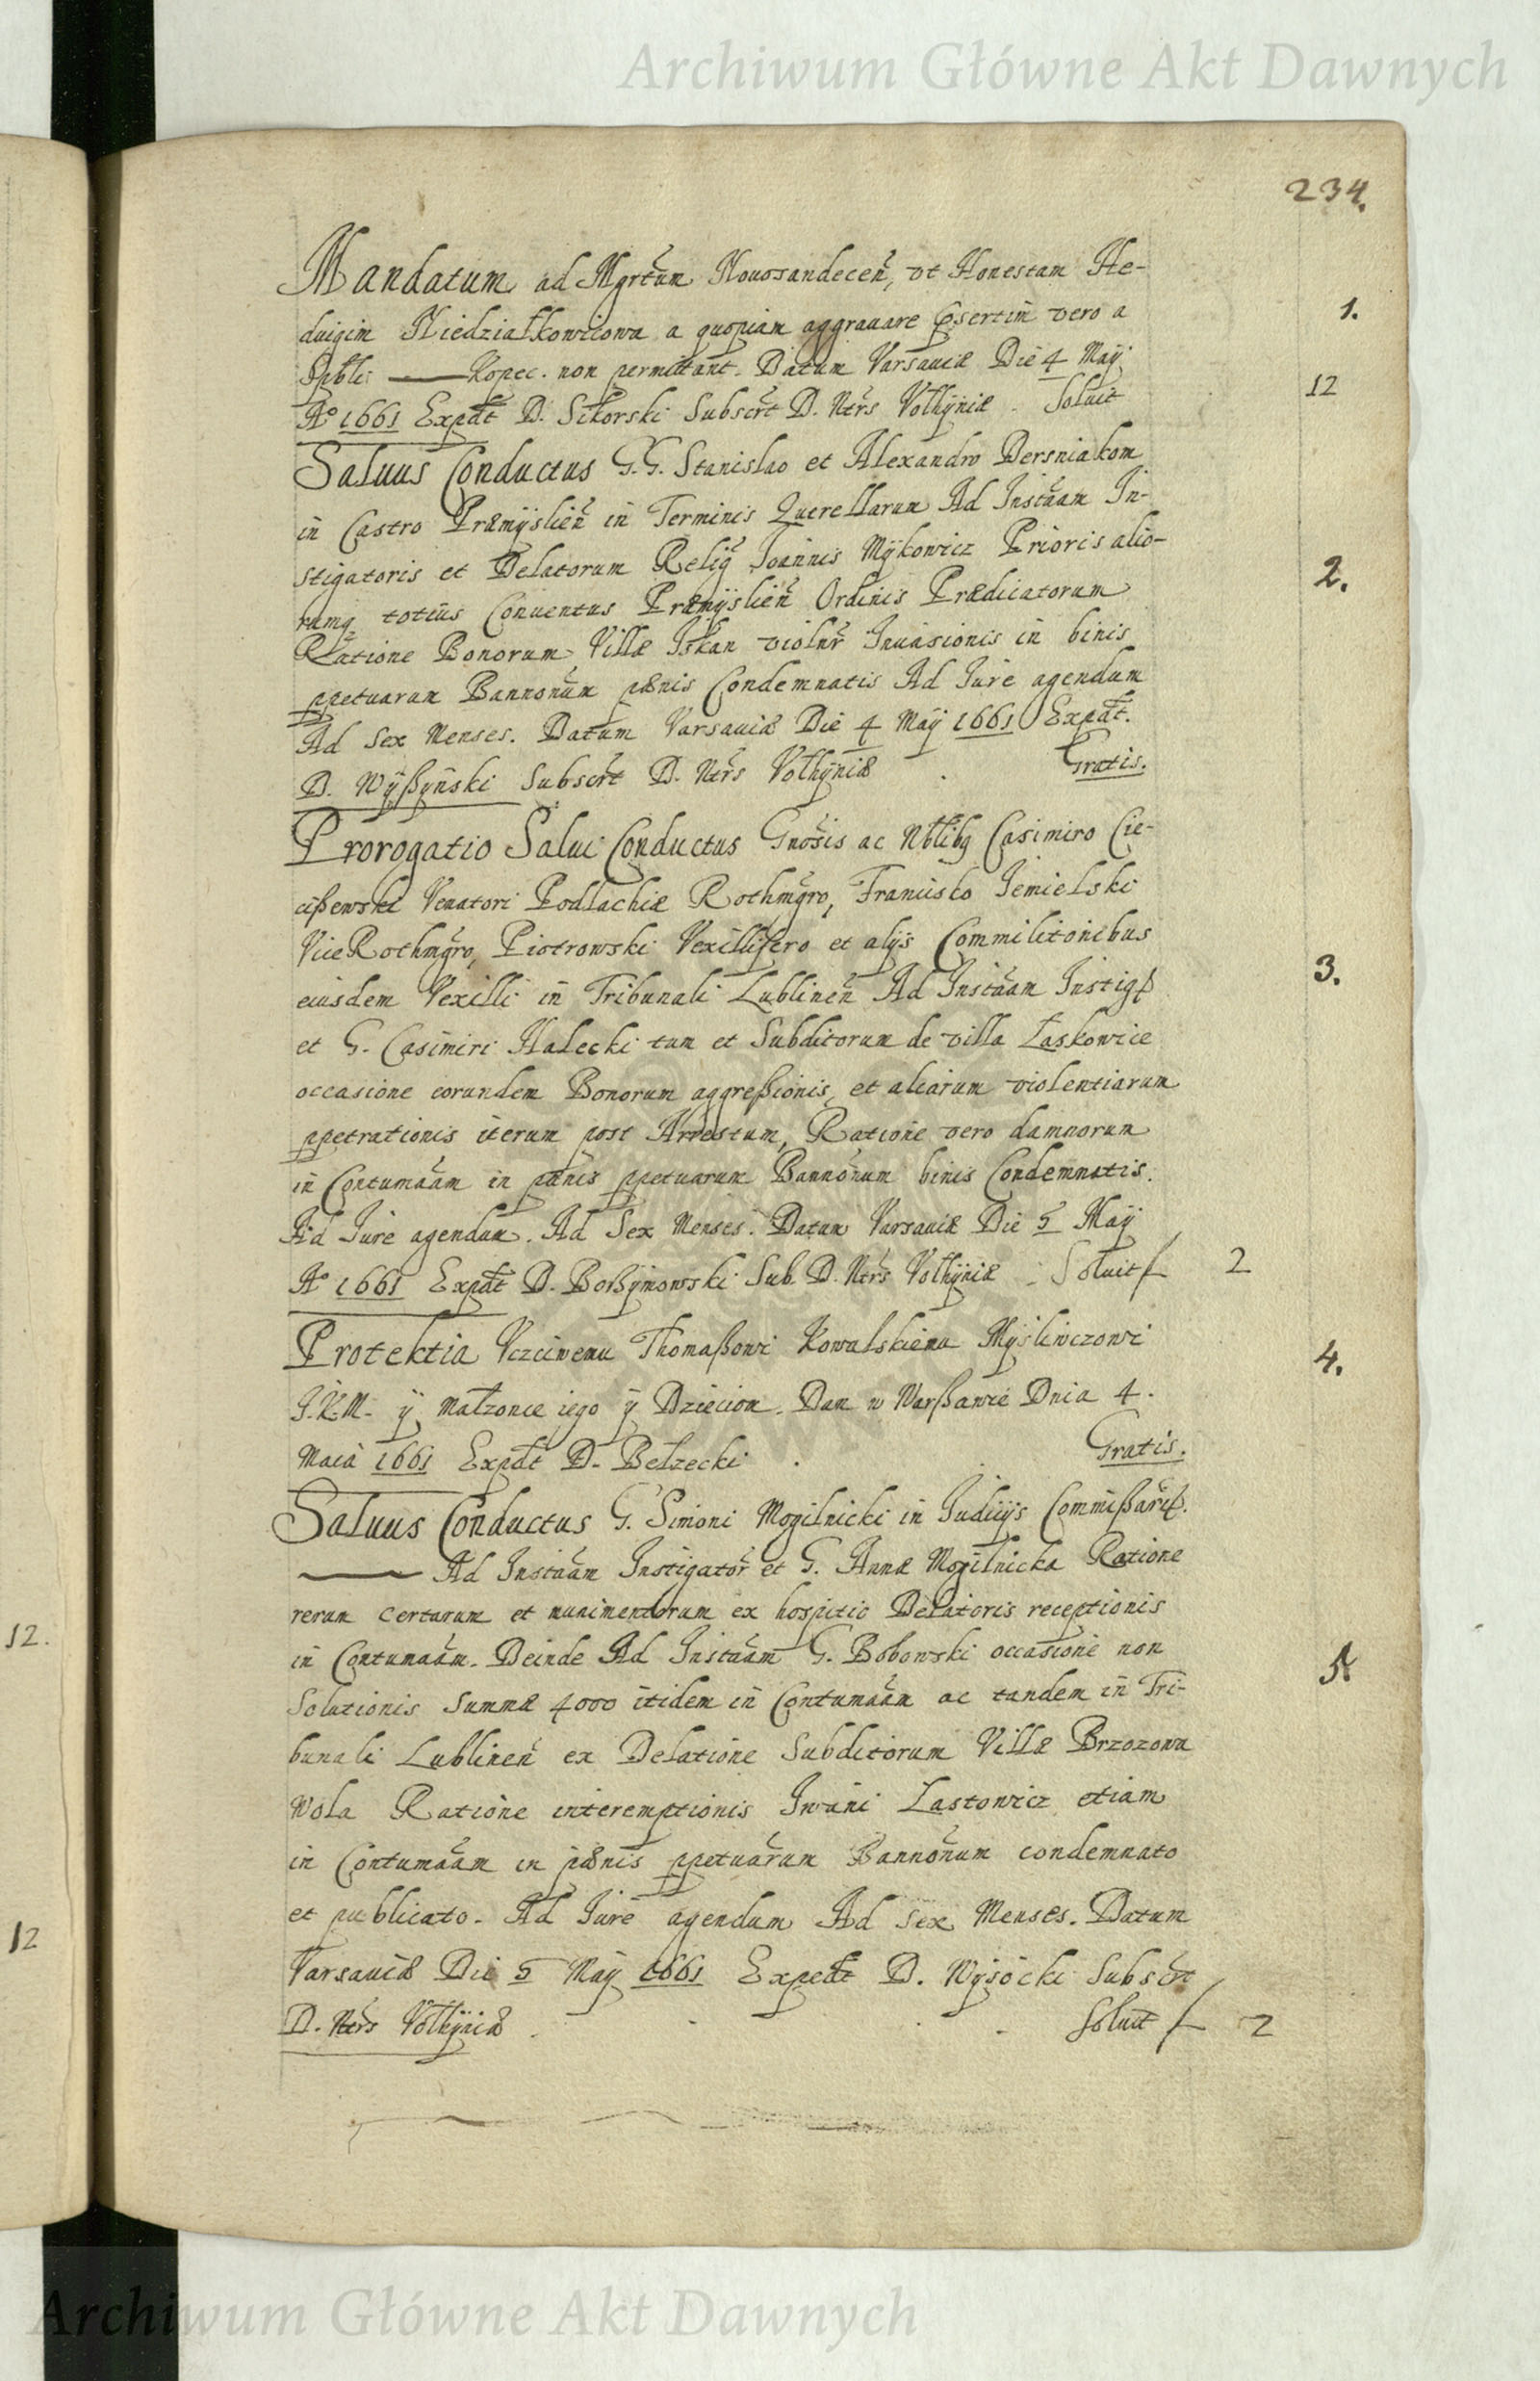 Archiwum Główne Akt Dawnych
234.
Mandatum ad Mgrtum Nouosandecen, vt Honestam He-
duigim Niedziałkowiowa a quopiam aggrauare psertim vero a 1.
Spbli: — Kopec. non permitant. Datum Varsauiæ Die 4 Maÿ
Aº 1661 Expdt D. Sikorski Subscrt D. Ntrs Volhÿniæ. Soluit 12
Saluus Conductus G.G. Stanislao et Alexandro Dersniakom
in Castro Præmÿslien in Terminis Querellarum Ad Instãam In-
stigatoris et Delatorum Relig Joannis Mÿkowicz Prioris alio- 2.
rumq totius Conuentus Præmÿslien Ordinis Prædicatorum
Ratione Bonorum Villæ Iskan violnr Inuasionis in binis
ppetuarum Bannonum pænis Condemnatis Ad Iure agendum
Ad Sex Menses. Datum Varsauiæ Die 4 Maÿ 1661 Expdt.
D. Wÿßÿnski Subscrt D. Ntrs Volhÿniæ . Gratis.
Prorogatio Salui Conductus Gnosis ac Nblibq Casimiro Cie-
cißewski Venatori Podlachiæ Rothmgro, Francisco Jemielski
ViceRothmgro, Piotrowski Vexillifero et alÿs Commilitonibus
eiusdem Vexilli in Tribunali Lublinen Ad Instãam Instig 3.
et G. Casimiri Halecki tum et Subditorum de villa Laskowice
occasione eorundem Bonorum aggreßionis, et aliarum violentiarum
ppetrationis iterum post Arrestum, Ratione vero damnorum
in Contumãam in pænis ppetuarum Bannonum binis Condemnatis.
Ad Iure agendum. Ad Sex Menses. Datum Varsauiæ Die 5 Maÿ
Aº 1661 Expdt D. Boßÿmowski Sub. D. Ntrs Volhÿniæ . Soluit f 2
Protektia Vczciwemu Thomaßowi Kowalskiemu Mÿsliwczowi 4.
J.K.M. ÿ Małzonce iego ÿ Dzieciom. Dan w Warßawie Dnia 4.
Maia 1661 Expdt D. Bełzecki . Gratis.
Saluus Conductus G. Simoni Mogilnicki in Iudicÿs Commißari.
— Ad Instãam Instigator et G. Annæ Mogilnicka Ratione
rerum certarum et munimentorum ex hospitio Delatoris receptionis
in Contumãam. Deinde Ad Instãam G. Bobowski occasione non 5.
Solutionis Summæ 4000 itidem in Contumãam ac tandem in Tri-
bunali Lublinen ex Delatione Subditorum Villæ Brzozowa
Wola Ratione interemptionis Iwani Lastowicz etiam
in Contumãam in pænis ppetuarum Bannonum condemnato
et publicato. Ad Iure agendum Ad Sex Menses. Datum
Varsauiæ Die 5 Maÿ 1661 Expedt D. Wÿsocki Subscrt
D. Ntrs Volhÿniæ . . . . Soluit f 2
12.
12
Archiwum Główne Akt Dawnych